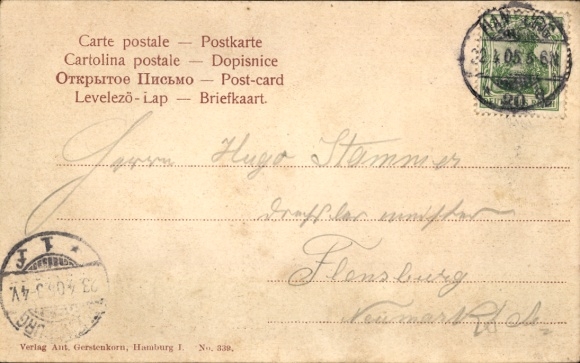 Carte postale — Postkarte
Cartolina postale — Dopisnice
Открытое Письмо — Post-card
Levelező-Lap — Briefkaart.
22 4 05 5-6N
20
Herrn Hugo Stammer
Drechslermeister
Flensburg
Neumarkt
23.4.05 3-4V
Verlag Ant. Gerstenkorn, Hamburg I. No. 339.